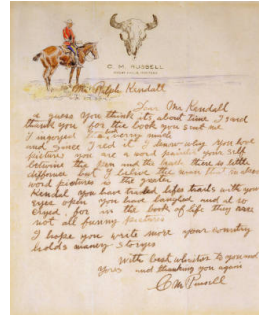 C. M. RUSSELL
GREAT FALLS, MONTANA
Mr Ralph Kendall
Dear Mr Kendall
I guess you think its about time I said
thank you for the book you sent me
I injoyed it very much
and since I red it I know why you love
pictures you are a word painter your self
betwine the pen and the brush there is little
diffornce but I belive the man that
word pictures is the greater
Kendal you have traled lifes trails with your
eyes open you have laughed and al so
cryed for in the book of life they are
not all funny pictures
I hope you write more your country
holds maney storyes
With best wishes to you and
yours and thanking you again
C M Russell